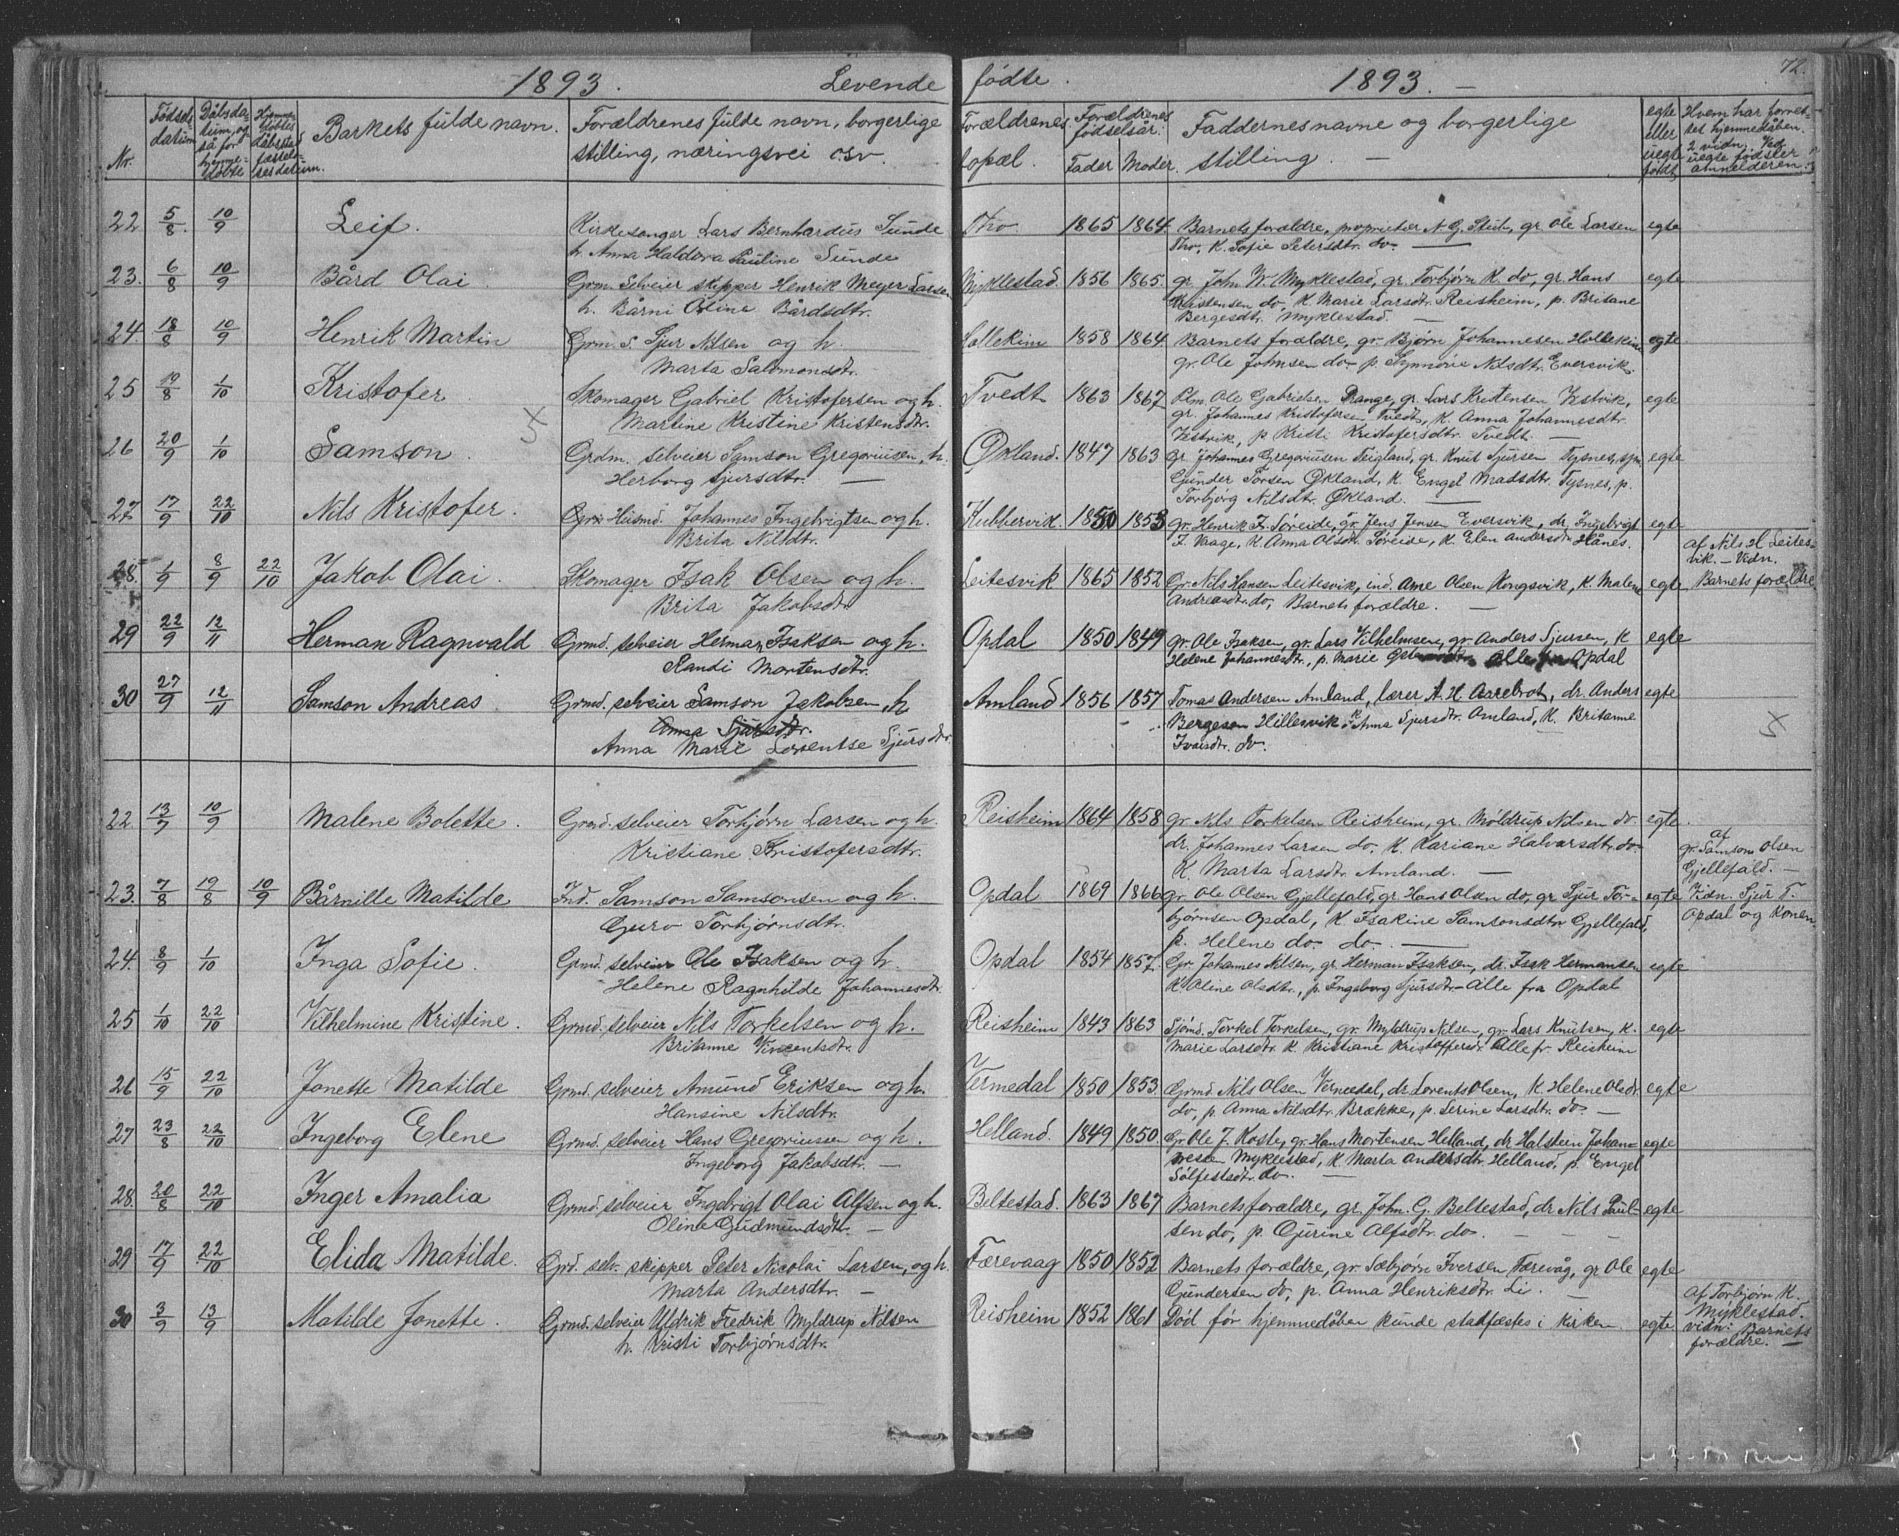 1893. Levende fødte. 1893. — 72.
Nr. Fødselsdatum Barnets fulde navn. Forældrenes fulde navn, borgerlige stilling, næringsvei osv. Forældrenes bopæl. Forældrenes fødselsår: Fader Moder. Faddernes navne og borgerlige stilling. — egte eller uegte født
22 5/8. 10/9 Leif. Kirkesanger Lars Bernhardus Sunde Tho 1865 1864 Barnets forældre, proprietær N G. gr. Ole Larsen egte
h. Anna Haldora Pauline Sunde Tho, K. Sofie Petersdtr. do —
23. 6/8 10/9 Bård Olai. Grm. Selveier skipper Henrik Meyer Larsen Myklestad. 1856 1865. gr. John W. Myklestad, gr. Torbjørn K. do, gr. Hans egte
h. Bårni Oline Bårdsdtr. Kristensen do, K. Marie Larsdtr. Reisheim, p. Britane
Bergesdtr. Myklestad —
24. 18/8 10/9 Henrik Martin Grm. S. Sjur Nilsen og h. Hollekim 1858 1864 Barnets forældre, gr. Bjørn Johannesen Hollekim egte
Marta Salomonsdtr. gr. Ole Johnsen do p. Synnøve Nilsdtr. Eversvik.
25 19/8 1/10 Kristofer. Skomager Gabriel Kristofersen og h. Tvedt 1863 1867 Ole Gabrielsen Drange, gr. Lars Kristensen Vestvik, egte
Martine Kristine Kristensdtr. gr. Johannes Kristofersen Tvedt, K. Anna Johannesdtr.
Vestvik, p Kristi Kristofersdtr. Tvedt. —
26 20/9 1/10 Samson. Grdm. selveier Samson Gregoriusen, h. Økland. 1847 1863 Gr. Johannes Gregoriusen Neigland, gr. Knut Sjursen Tysnes, sjm. egte
Herborg Sjursdtr. — Gunder Torsen Økland, K Engel Madsdtr. Tysnes, p.
Torbjørg Nilsdtr. Økland. —
27. 17/9 22/10 Nils Kristofer. Husmd. Johannes Ingebrigtsen og h. Kubbervik. 1850 1853 gr. Henrik T. Søreide, gr. Jens Jensen Eversvik, dr. Ingebrigt egte
Brita Nilsdtr. J. Vaage, K. Anna Olsdtr. Søreide, K. Elen Andersdtr Hånes. af Nils H Leitesvik. — Vidn.
28. 1/9 8/9 22/10 Jakob Olai. Skomager Isak Olsen og h. Leitesvik 1865 1852 Gr. Nils Hansen Leitesvik, ind. Arne Olsen Kongsvik, K. Malene egte Barnets forældre
Brita Jakobsdtr. Andreasdtr. do, Barnets forældre. —
29 22/9 12/11 Herman Ragnvald Grmd. selveier Herman Isaksen og h. Opdal 1850 1849 gr. Ole Isaksen, gr. Lars Vilhelmsen, gr. Anders Sjursen, K egte
Randi Mortensdtr. Helene Johannesdtr., p. Marie alle fra Opdal
30 27/9 12/11 Samson Andreas Grmd. selveier Samson Jakobsen, h Amland 1856 1857 Tomas Andersen Amland, lærer A. H. Arrebrot, dr. Anders egte
Anna Sjursdtr. Bergesen Hillesvik K Anna Sjursdtr. Amland, K. Britanne
Anna Marie Lorentse Sjursdtr. Ivarsdtr. do.
22 13/7 10/9 Malene Bolette. Grmd. selveier Torbjørn Larsen og h. Reisheim 1864 1858 gr. Nils Torkelsen Reisheim, gr. Møldrup Nilsen do. egte.
Kristiane Kristofersdtr. dr. Johannes Larsen do, K. Kariane Halvarsdtr. do. af gr. Samson Olsen
K. Marta Larsdtr. Amland. — Gjellefald. —
23. 7/8 19/8 10/9 Bårnille Matilde Ind. Samson Samsonsen og h. Opdal 1869 1866 gr. Ole Olsen Gjellefald, gr. Hans Olsen do, gr Sjur Tor- egte Vidn. Sjur T.
Guro Torbjørnsdtr. bjørnsen Opdal, K Isakine Samsonsdtr. Gjellefald, Opdal og Konen
p. Helene do. do. —
24. 8/9 1/10 Inga Sofie. Grmd. selveier Ole Isaksen og h. Opdal 1854 1857. Gr. Johannes Nilsen, gr. Herman Isaksen, dr. Isak Hermansen egte
Helene Ragnhilde Johannesdtr. K. Oline Olsdtr., p. Ingeborg Sjursdtr — Alle fra Opdal
25 1/10 22/10 Vilhelmine Kristine. Grmd. selveier Nils Torkelsen og h. Reisheim 1843 1863 Sjømd. Torkel Torkelsen, gr. Myldrup Nilsen, gr. Lars Knutsen, K. egte
Britanne Vincentsdtr. Marie Larsdtr. K. Kristiane Kristoffersdr. Alle fr. Reisheim
26 15/9 22/10 Jonette Matilde Grmd. selveier Amund Eriksen og h. Vernedal 1850 1853. Grmd. Nils Olsen Vernedal, dr. Lorents Olsen, K Helene Olsdr. egte
Hansine Nilsdtr. do, p. Anna Nilsdtr. Brække, p. Serine Larsdtr. do —
27 23/8 22/10 Ingeborg Elene Grmd. selveier Hans Gregoriussen og h. Helland. 1849 1850. Gr. Ole J. Koste, gr. Hans Mortensen Helland, dr. Halstein Johan- egte
Ingeborg Jakobsdtr. — nesen Myklestad, K Marta Andersdtr. Helland, p. Engel
Sølfestsdtr. do. —
28. 20/8 22/10 Inger Amalia Grmd. selveier Ingebrigt Olai Alfsen og h. Beltestad. 1863 1867 Barnets forældre, gr. John. G. Beltestad, dr. Nils Paul- egte
Oline Gudmundsdtr. — sen do, p. Gurine Alfsdtr. do.
29 17/9 22/10 Elida Matilde. Grd. selv. skipper Peter Nicolai Larsen, og h. Færevaag 1850 1852 Barnets forældre, gr. Sæbjørn Iversen Færevåg, gr. Ole egte
Marta Andersdtr. — Gundersen do, p. Anna Henriksdtr. Li. — af Torbjørn K.
30 3/9 13/9 Matilde Jonette. Grmd. selveier Uldrik Fredrik Myldrup Nilsen Reisheim 1852 1861 Død før hjemmedåben kunde stadfæstes i kirken. egte Myklestad. vidn: Barnets
h. Kristi Torbjørnsdtr. forældre. —